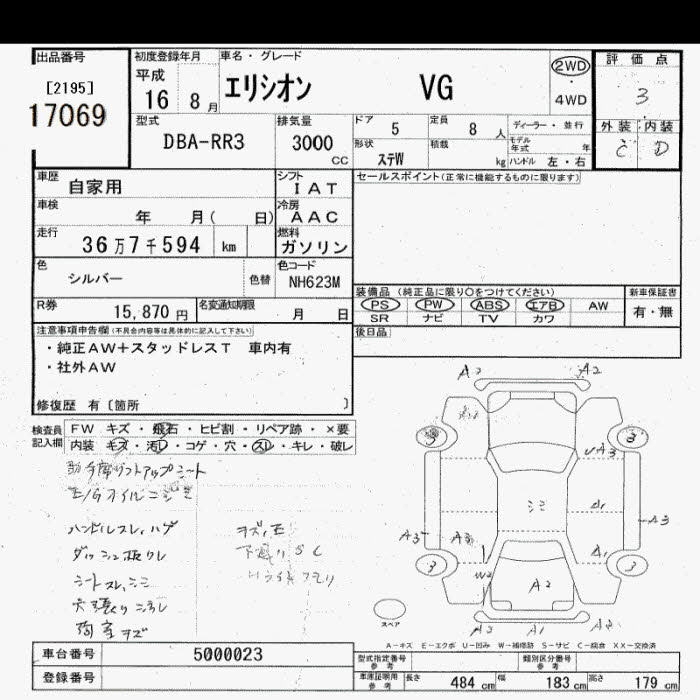 出品番号
[2195]
17069
初度登録年月
平成
16 8 月
車名・グレード
エリシオン VG
2WD
4WD
評価点
3
外装 内装
C D
型式
DBA-RR3
排気量
3000
CC
ドア 5
定員 8 人
形状 ステW
積載 kg
ディーラー・並行
モデル年式 年
ハンドル 左・右
車歴
自家用
シフト
IAT
セールスポイント(正常に機能するものに限ります)
車検
年 月( 日)
冷房
AAC
走行
36万7千594 km
燃料
ガソリン
色
シルバー
色替
色コード
NH623M
装備品 (純正品に限り○をつけてください)
新車保証書
PS PW ABS エアB AW
有・無
SR ナビ TV カワ
R券
15,870 円
名変通知期限
月 日
後日品
注意事項申告欄(不具合内容等は具体的に記入して下さい)
・純正AW+スタッドレスT 車内有
・社外AW
修復歴 有〔箇所 〕
検査員記入欄
FW キズ・飛石・ヒビ割・リペア跡・×要
内装 キズ・汚レ・コゲ・穴・スレ・キレ・破レ
助手席リフトアップシート
E/Gオイルニジミ
ハンドルスレ、ハゲ
ダッシュ板クレ
シートスレ、シミ
天張り
キズ
A2 A2
3 3
A3
ミミ A1
A3 A3 A3
3 A1 3
W2
A2
スペア
A2 A1 A2
A-キズ E-エクボ U-凹み W-補修跡 S-サビ C-腐食 XX-交換済
車台番号
5000023
型式指定番号
参考
類別区分番号
参考
登録番号
車庫証明用
参考
長さ 484 cm
幅 183 cm
高さ 179 cm